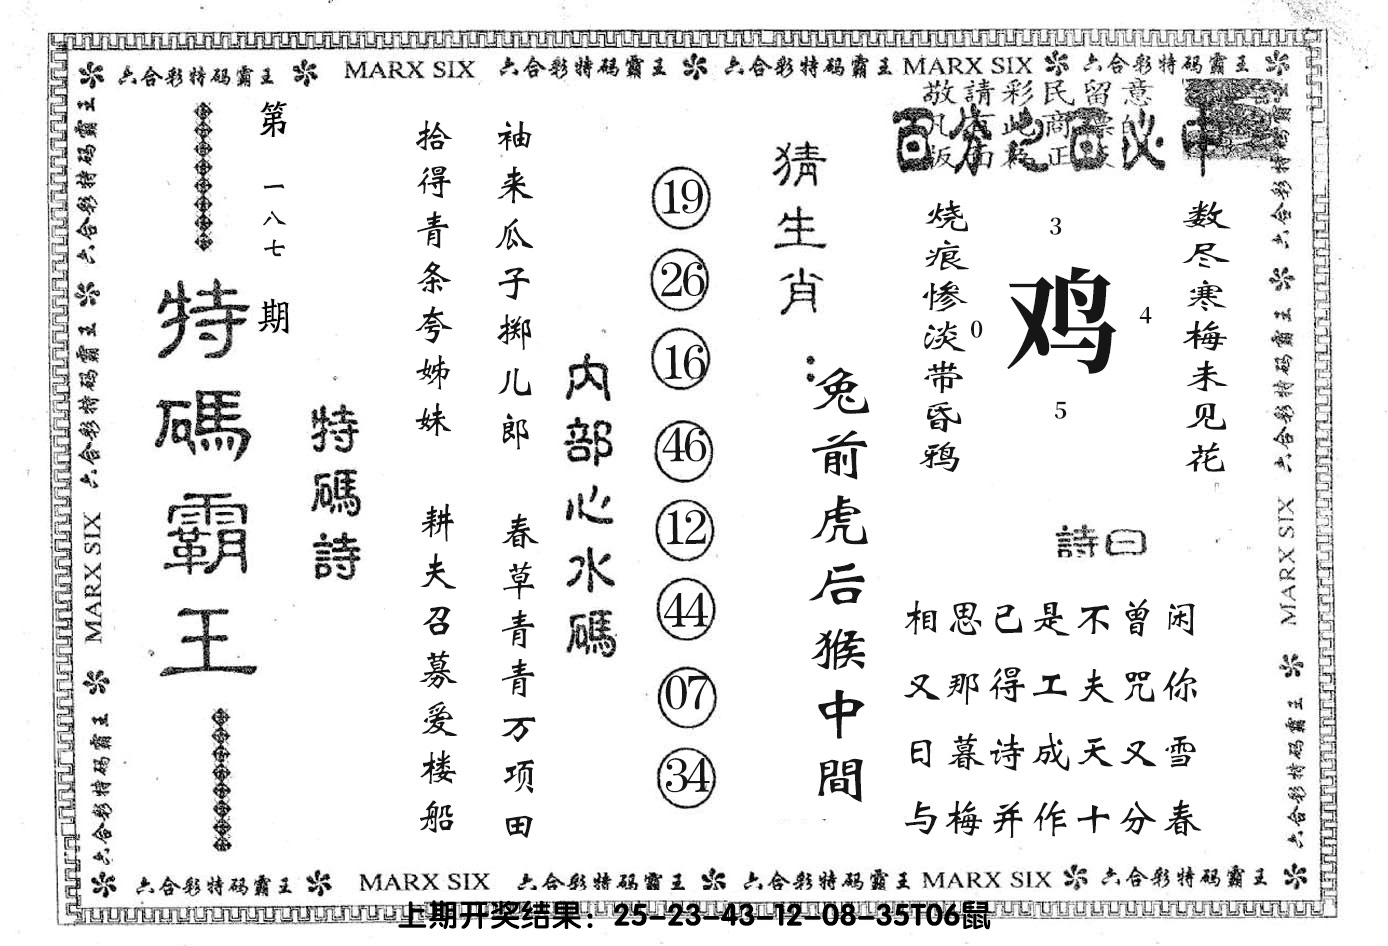 六合彩特码霸王 MARX SIX 六合彩特码霸王 六合彩特码霸王 MARX SIX 六合彩特码霸王
敬請彩民留意
百分之百必中
数尽寒梅未见花
烧痕惨淡带昏鸦
3
0 鸡 4
5
詩曰
相思已是不曾闲
又那得工夫咒你
日暮诗成天又雪
与梅并作十分春
猜生肖:
兔前虎后猴中間
内部心水碼
19
26
16
46
12
44
07
34
袖来瓜子掷儿郎 春草青青万项田
拾得青条夸姊妹 耕夫召募爱楼船
特碼詩
第一八七期
特碼霸王
六合彩特码霸王 六合彩特码霸王 MARX SIX 六合彩特码霸王
六合彩特码霸王 六合彩特码霸王 MARX SIX 六合彩特码霸王
六合彩特码霸王 MARX SIX 六合彩特码霸王 六合彩特码霸王 MARX SIX 六合彩特码霸王
上期开奖结果：25-23-43-12-08-35T06鼠